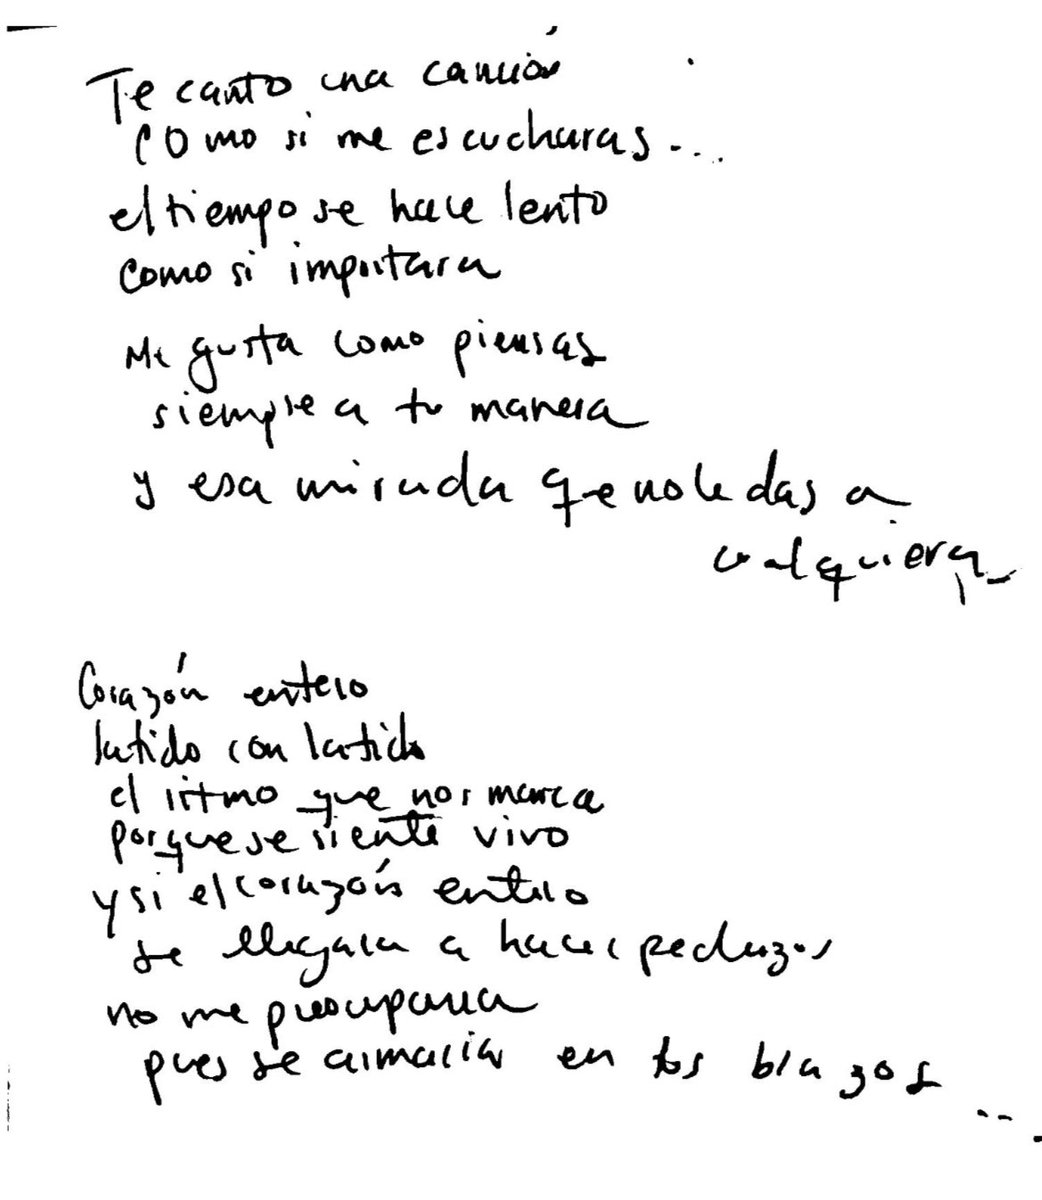 Te canto una canción
como si me escucharas...
el tiempo se hace lento
como si importara
Me gusta como piensas
siempre a tu manera
y esa mirada que no le das a
cualquiera
Corazón entero
latido con latido
el ritmo que nos marca
porque se siente vivo
y si el corazón entero
se llegara a hacer pedazos
no me preocuparia
pues se armaria en tus brazos
...